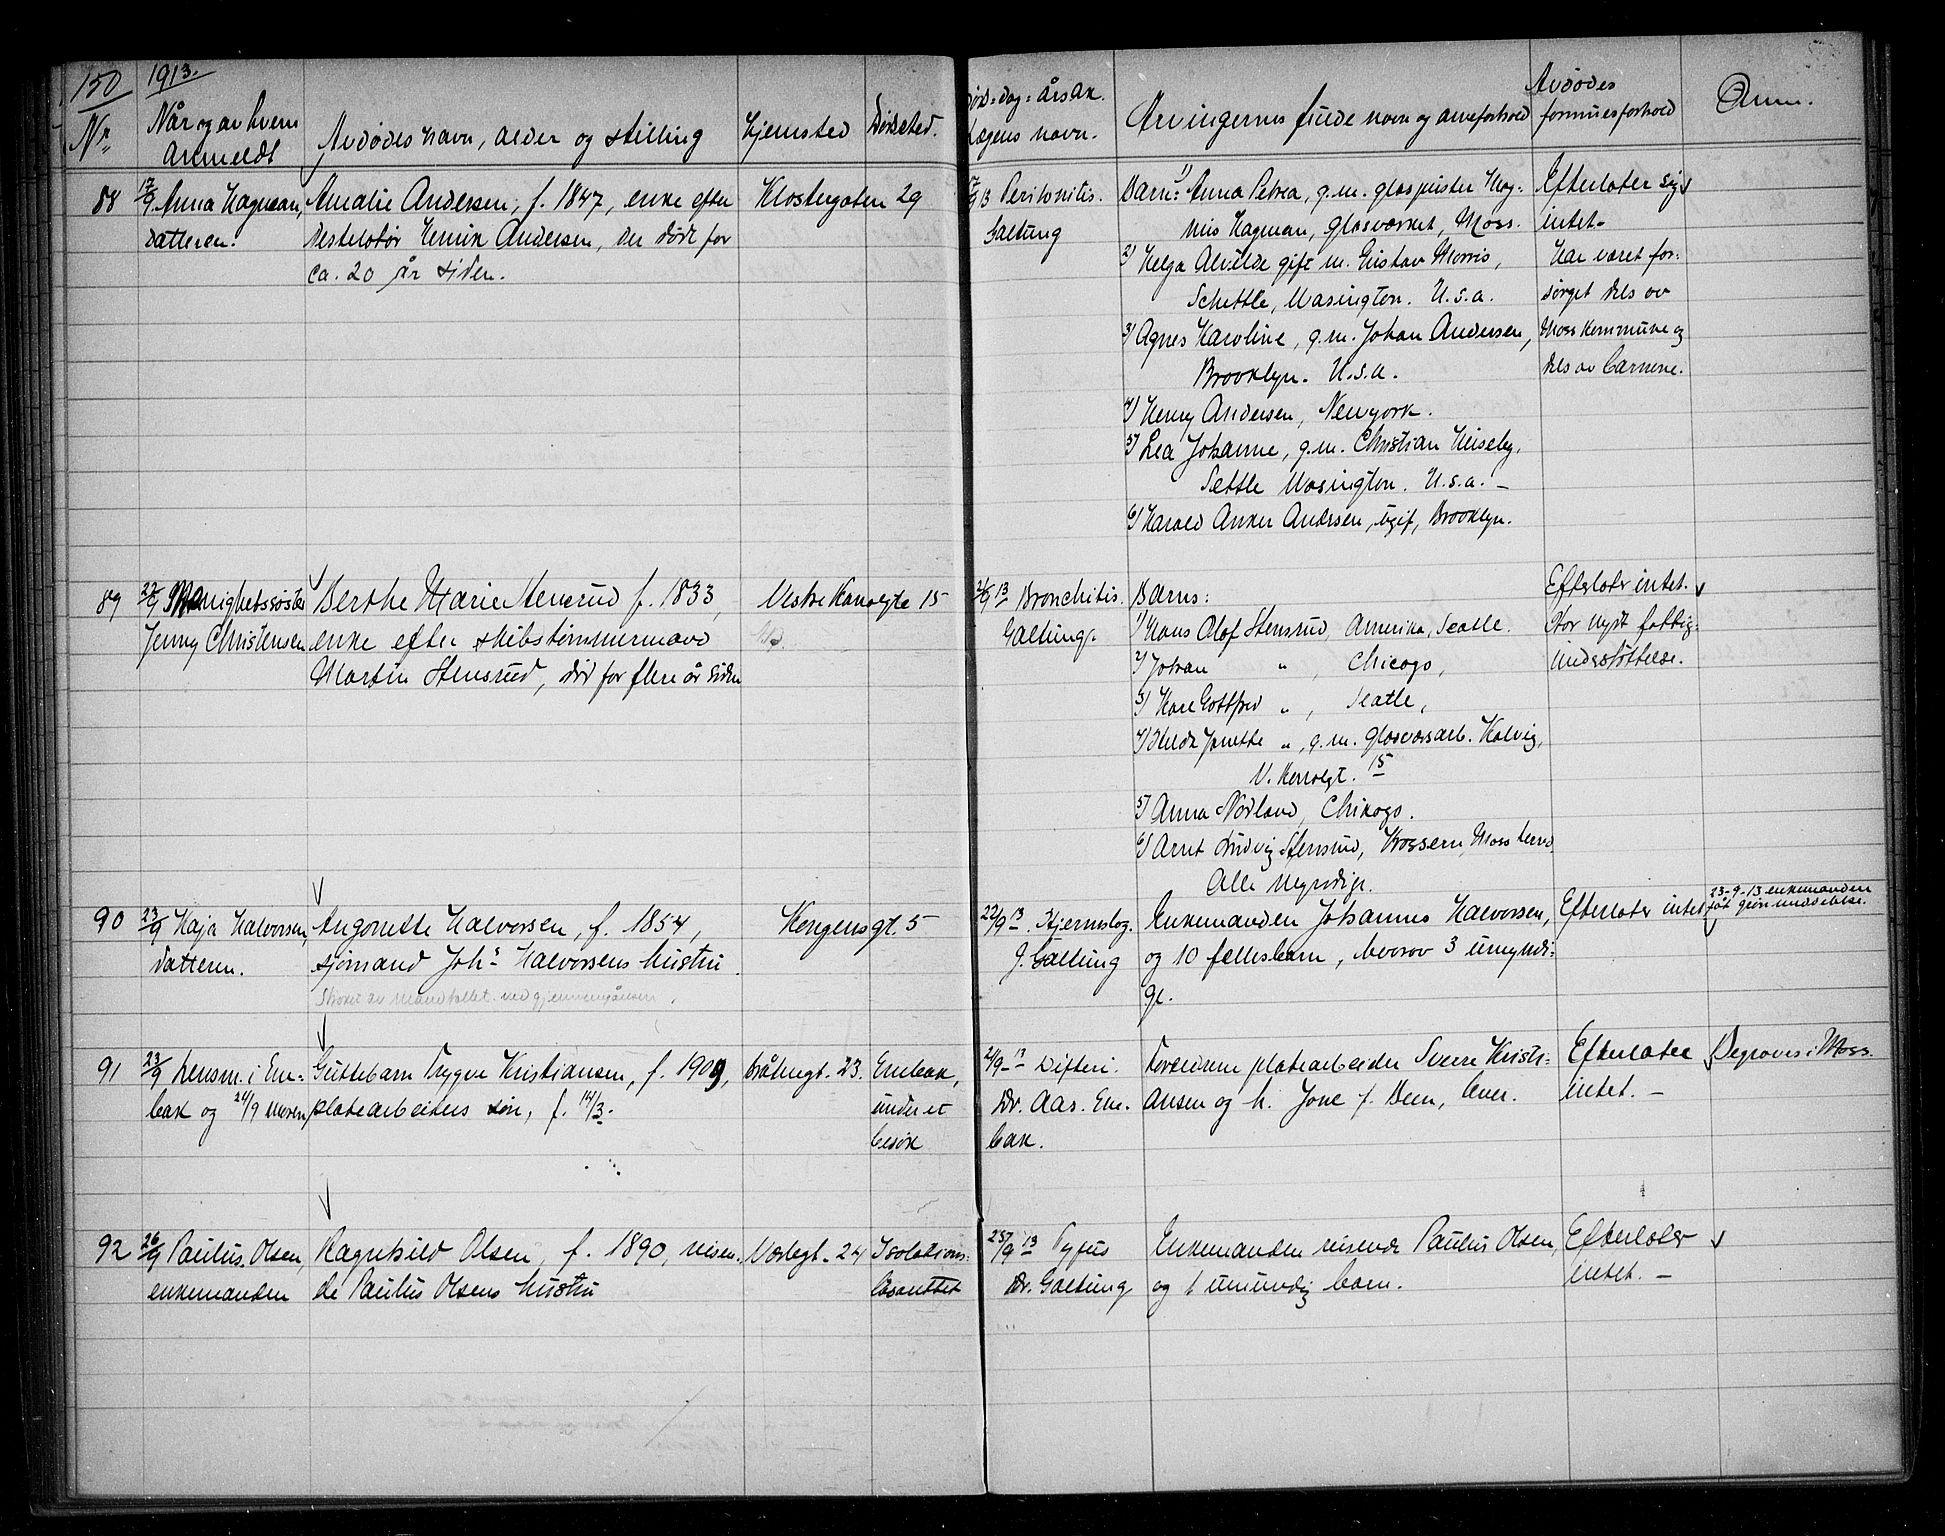 150 1913.
Nr. Når og av hvem anmeldt
Avdødes navn, alder og stilling
Hjemsted
Dødsted.
Døds=dag=årsak.
Lægens navn.
Arvingernes fulde navn og arveforhold
Avdødes formuesforhold
Anm.
88 17/9 Anna Hagman,
datteren.
Amalie Andersen, f. 1847, enke efter
destelatør Henrik Andersen, der døde for
ca. 20 år siden.
Klostergaten 29
17/9 13 Peritonitis.
Galtung
Barn: 1) Anna Petrea, g.m. glaspuster Mag-
nus Hagman, glasværket, Moss.
2) Helga Alvilde gift m. Gustav Morris,
Schettle, Wasington. U.S.a.
3) Agnes Karoline, g.m. Johan Andersen,
Brooklyn. U.S.a.
4) Henry Andersen, Newyork.
5) Lea Johanne, g.m. Christian Heiseby,
Settle Wasington. U.S.a. –
6) Harald Anker Andersen, ugif, Brooklyn.
Efterlater sig
intet.
Har været for=
sørget dels av
Moss kommune og
dels av barnene.
89 22/9 Menighetssøster
Jenny Christensen
Berthe Marie Stensrud f. 1833,
enke efter skibstømmermand
Martin Stensrud, død for flere år siden
Vestre Kanalgte 15
21/9 13 Bronchitis.
Galtung.
Barn:
1) Hans Olaf Stensrud, Amerika, Seatle.
2) Johan " , Chicago,
3) Karl Gottfred " , Seatle,
4) Hilda Janette " , g.m. glasværsarb. Kalvig,
V. Kanalgt. 15
5) Anna Nordland, Chikago.
6) Arnt Ludvig Stensrud, Krossern, Moss land
Alle myndige.
Efterlater intet.
Har nydt fattig=
understøttelse.
90 23/9 Kaja Halvorsen,
datteren.
Angonette Halvorsen, f. 1854,
sjømand Johs Halvorsens hustru
Strøket av mandtallet ved gjennemgåelsen.
Kongensgt. 5
22/9 13. Hjerneslag.
G. Galtung
Enkemanden Johannes Halvorsen,
og 10 fællesbarn, hvorav 3 umyndi=
ge.
Efterlater intet
23-9-13 enkemanden
fåt
91 23/9 Lensm. i Ene=
bak og 24/9 moren,
Guttebarn Trygve Kristiansen, f. 1909,
platearbeiders søn, f. 14/3.
Bråtengt. 23.
Enebak,
under et
besøk
21/9 13 Difteri.
Dr. Aas. Ene.
bak.
Forældrene platearbeider Sverre Kristi=
ansen og h. Jone f. Deen, lever.
Efterlater
intet. –
Begraves i Moss.
92 26/9 Paulus Olsen,
enkemanden
Ragnhild Olsen, f. 1890, reisen=
de Paulus Olsens hustru
Varlegt. 24
Isolations=
lasarettet
25/9 13 Tyfus
Dr. Galtung
Enkemanden reisende Paulus Olsen,
og 1 umundig barn.
Efterlater
intet. –